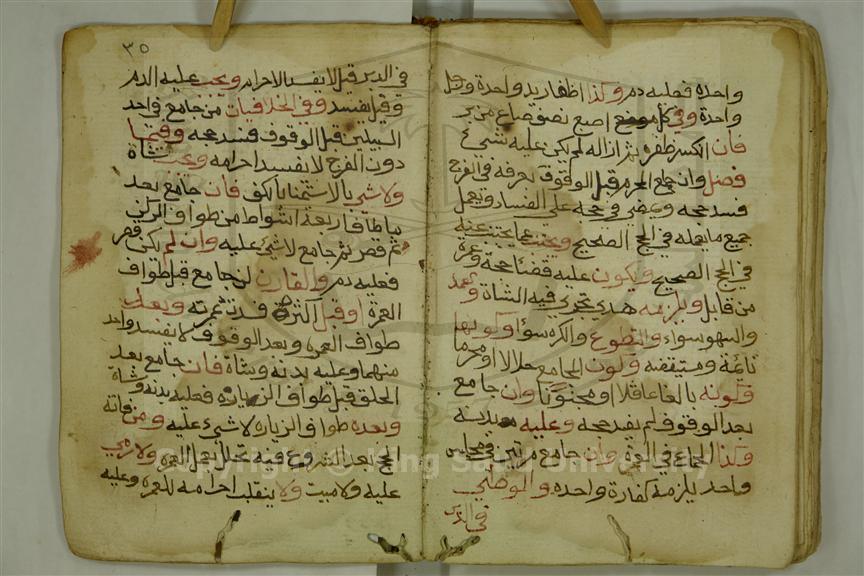 واحدة فعليه دم وكذا اظفار يد واحدة ورجل
واحدة وفي كل اصبع نصف صاع من بر
فان انكسر ظفره ثم ازاله لم يكن عليه شيء
فصل وان جامع المحرم قبل الوقوف بعرفة في الفرج
فسد حجه ويمضي في حجه على الفساد ويعمل
جميع ما يعمله في الحج الصحيح ويجتنب عما يجتنب عنه
في الحج الصحيح ويكون عليه قضاء حجة وعمرة
من قابل ويلزمه هدي تجزي فيه الشاة وعمد
والسهو سواء والتطوع والكره سوا وكونها
نائمة ومتيقضة وكون المجامع حلالا او محرما
وكونه بالغا عاقلا او مجنونا وان جامع
بعد الوقوف لم يفسد حجه وعليه بدنه
وكذا الجماع في العمرة وان جامع مرتين في مجلس
واحد يلزمه كفارة واحده والوطي
في الدبر
٣٥
في الدبر قيل لا يفسد الاحرام ويجب عليه الدم
وقيل يفسد وفي الخلافيات من جامع واحد
السبيلين قبل الوقوف فسد حجه وفيما
دون الفرج لا يفسد احرامه ويجب شاة
ولا شي بالاستمنا بالكف فان جامع بعد
ما طاف اربعة اشواط من طواف الركن
ثم قصر ثم جامع لا شئ عليه وان لم يكن قصر
فعليه دم والقارن لن جامع قبل طواف
العمرة او قبل اكثره فسدت عمرته وبعد
طواف العمرة وبعد الوقوف لا يفسد واحد
منهما وعليه بدنة وشاة فان جامع بعد
الحلق قبل طواف الزياره فعليه بدنه وشاة
وبعده طواف الزياره لا شيء عليه ومن فاته
الحج بعد الشروع فيه تحلل بعمل العمرة ولا رمي
عليه ولا مبيت ولا ينقلب احرامه للعمرة وعليه
Copyright © King Saud University